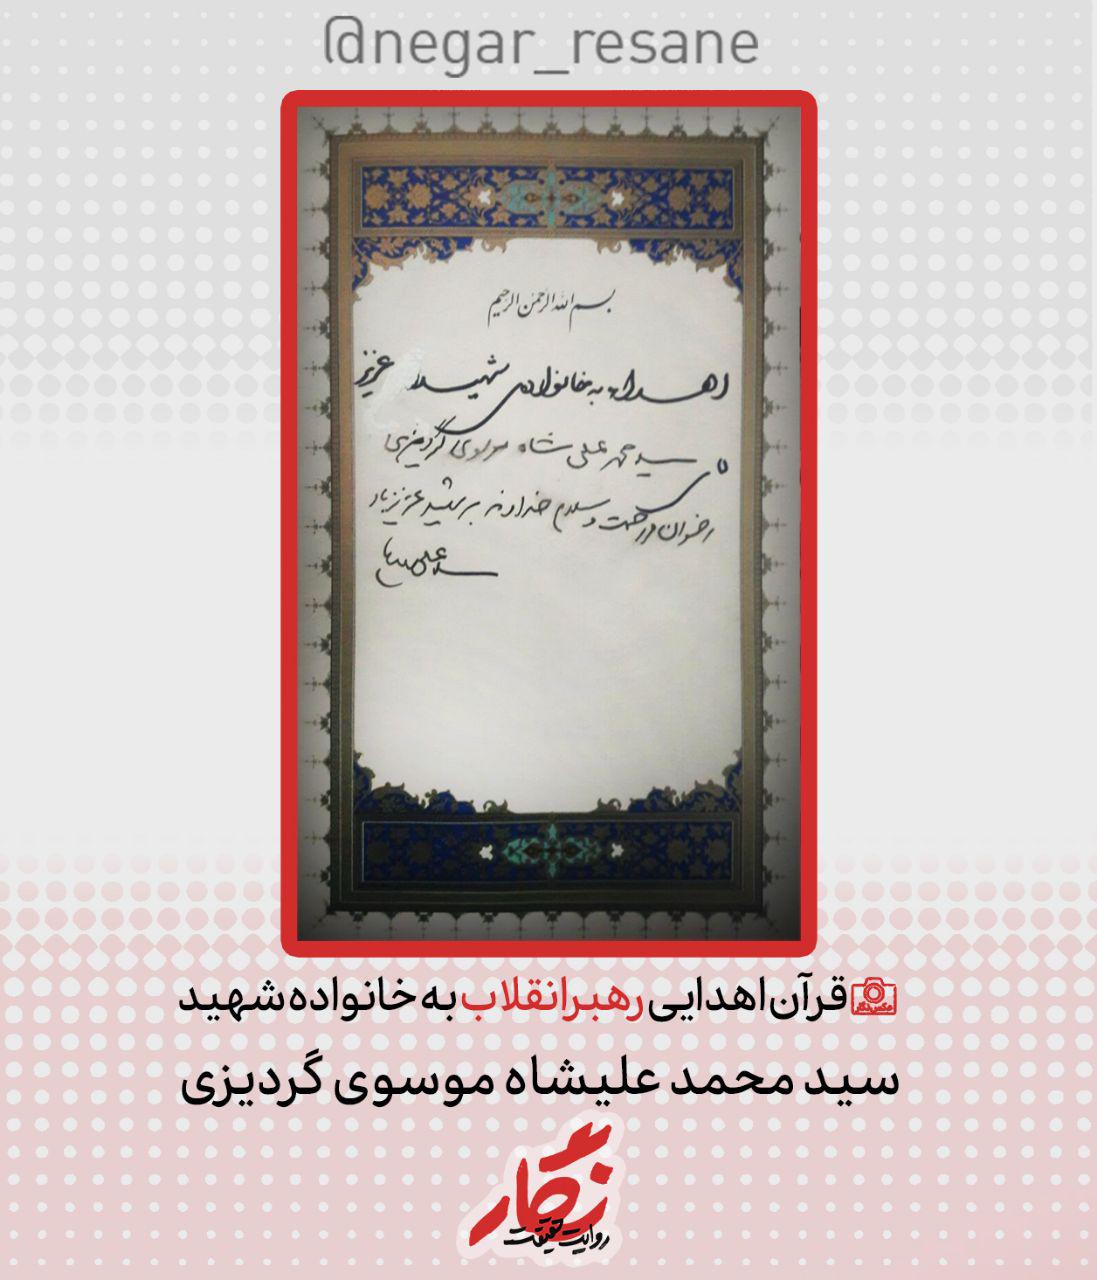 @negar_resane
بسم الله الرحمن الرحیم
اهداء به خانواده‌ی شهید عزیز
سید محمد علی شاه موسوی گردیزی
رضوان و رحمت و سلام خداوند بر شهید عزیز باد
سید علی خامنه‌ای
قرآن اهدایی رهبر انقلاب به خانواده شهید
سید محمد علیشاه موسوی گردیزی
نگار
روایت حقیقت